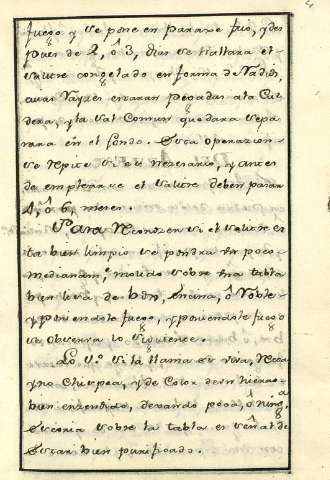 fuego y se pone en parage frio, y des
pues de 2, ó 3, dias se hallara el
salitre congelado en forma de
cuias estaran pegadas a la Cal
dera, y la sal Comun quedara sepa
rada en el fondo. Esta operazion
se repite si es nezesario, y antes
de emplearse el salitre deben pasar
4, ó 6, meses.
Para Reconozer si el salitre es
ta bien limpio se pondra un poco
molido sobre una tabla
bien lisa de Enzina, ó Roble
y poniendole fuego
se observa lo siguiente.
Lo 1.º si la llama es
y no Chispea, y de Color de un hierro
bien enzendido, dexando poca, ó ning.a
Escoria sobre la tabla es señal de
Estar bien purificado.